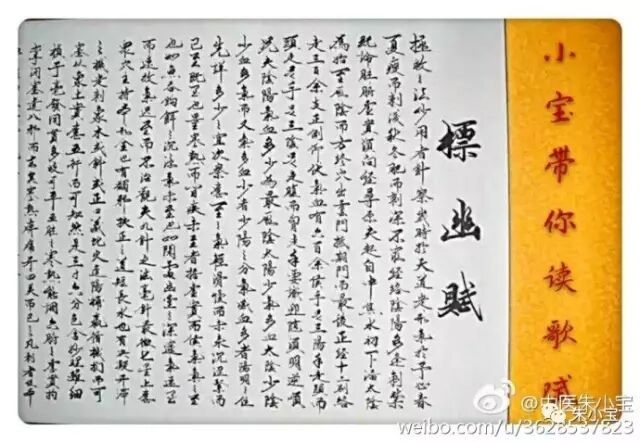 小宝带你读歌赋
標幽賦
拯救之法妙用者針察歲時於天道定形氣於予心春
夏瘦而刺淺秋冬肥而刺深不窮經絡陰陽多逢刺禁
既論臟腑虛實須向經尋原夫起自中焦水初下漏太陰
為始至厥陰而方終穴出雲門抵期門而最後正經十二別絡
走三百余支正側仰伏氣血有六百余候手足三陽手走頭而
頭走足手足三陰足走腹而胸走手要識迎隨須明逆順
況夫陰陽氣血多少為最厥陰太陽少氣多血太陰少陰
少血多氣而又氣多血少者少陽之分氣盛血多者陽明之位
先詳多少之宜次察應至之氣輕滑慢而未來沉澀緊而
已至既至也量寒熱而留疾未至者據虛實而候氣氣之至
也如魚吞鉤餌之浮沉氣未至也如閑處幽堂之深邃氣速至
而速效氣遲至而不治觀夫九針之法毫針最微七星上應
眾穴主持本形金也有蠲邪扶正之道短長水也有決凝開滯
之機定刺象木或斜或正口藏比火進陽補羸循機捫而可
塞以象土實應五行而可知然是三寸六分包含妙理雖細
楨于毫發同貫多歧可平五臟之寒熱能調六腑之虛實拘
攣閉塞遣八邪而去矣寒熱痺痛開四關而已之凡刺者使本
@古医朱小宝
朱小宝
weibo.com/u/3628537823